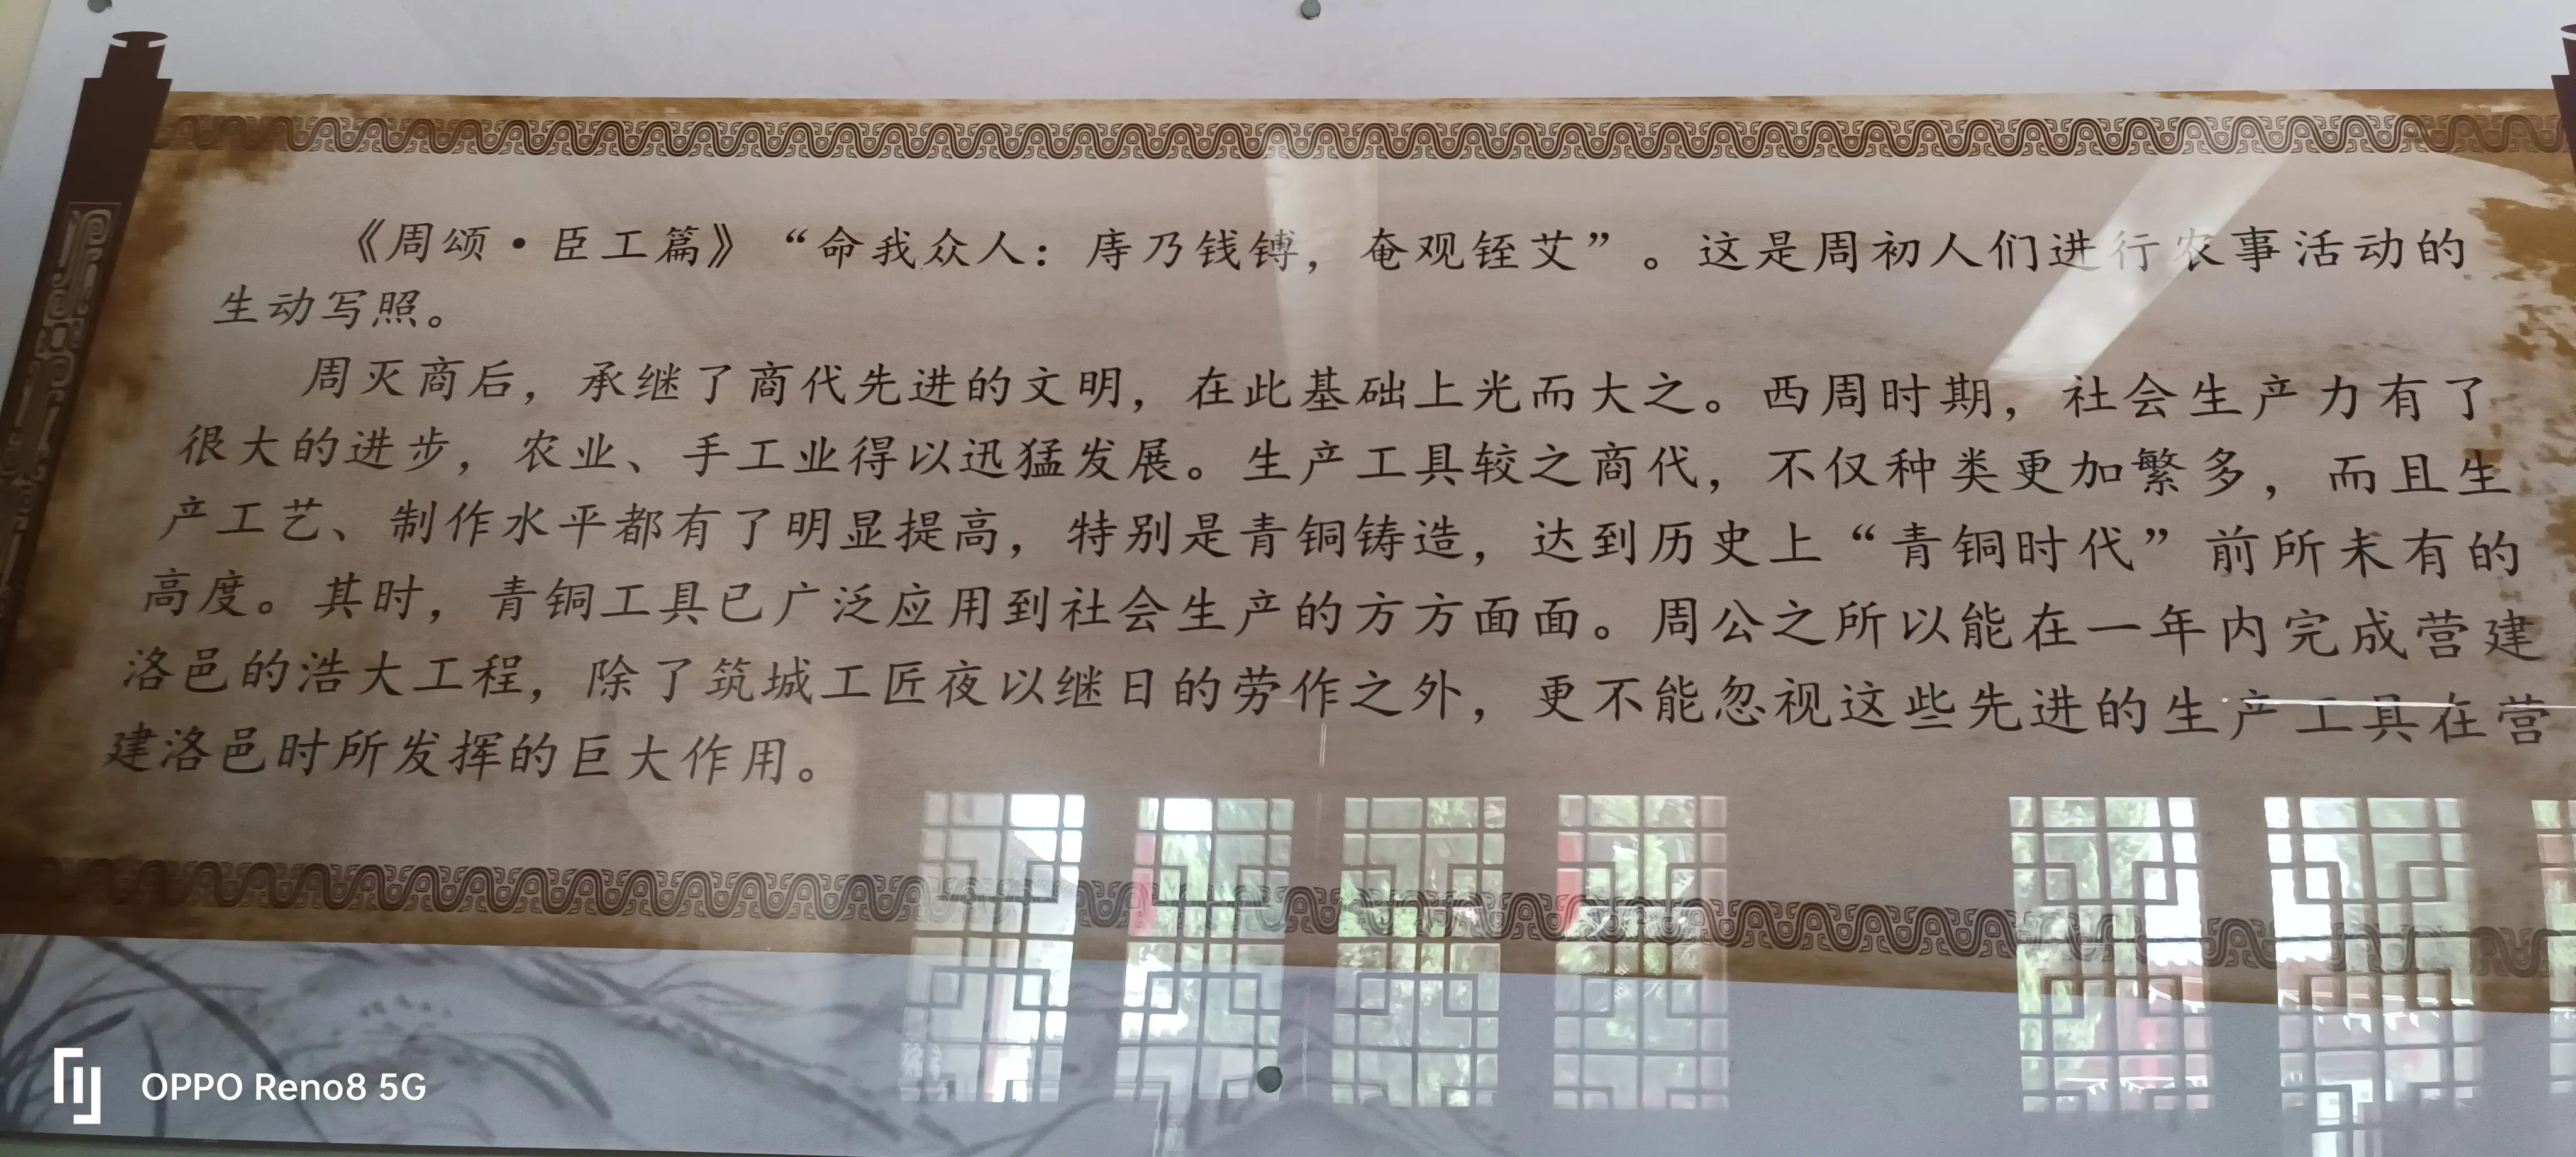 《周颂·臣工篇》“命我众人：庤乃钱镈，奄观铚艾”。这是周初人们进行农事活动的
生动写照。
周灭商后，承继了商代先进的文明，在此基础上光而大之。西周时期，社会生产力有了
很大的进步，农业、手工业得以迅猛发展。生产工具较之商代，不仅种类更加繁多，而且生
产工艺、制作水平都有了明显提高，特别是青铜铸造，达到历史上“青铜时代”前所未有的
高度。其时，青铜工具已广泛应用到社会生产的方方面面。周公之所以能在一年内完成营建
洛邑的浩大工程，除了筑城工匠夜以继日的劳作之外，更不能忽视这些先进的生产工具在营
建洛邑时所发挥的巨大作用。
OPPO Reno8 5G